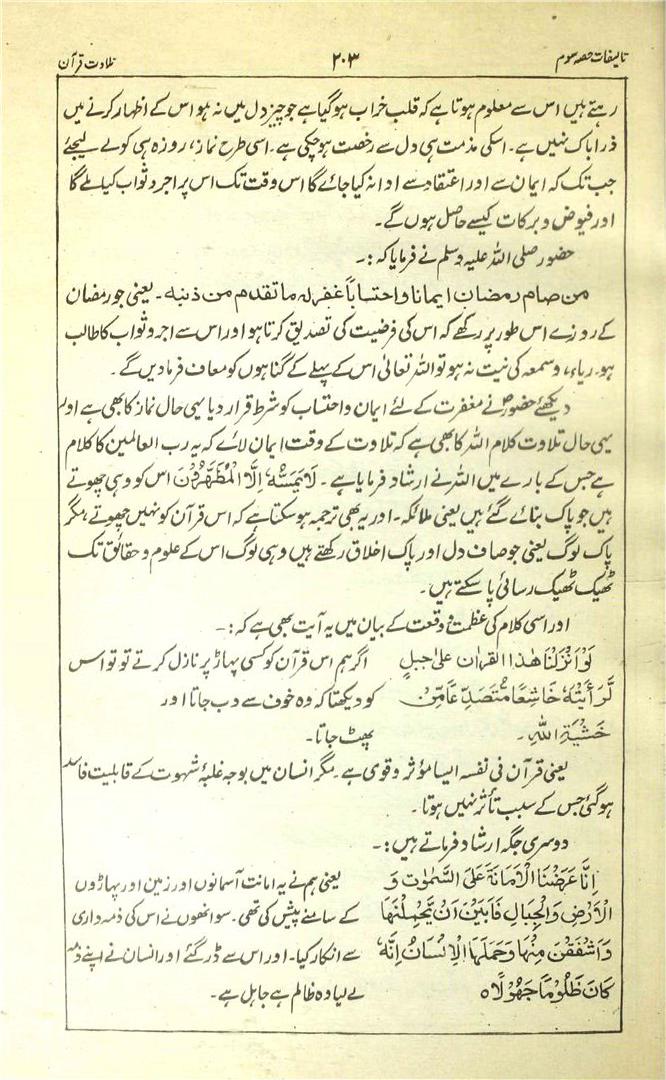 تالیفات حصہ سوم ۲۰۳ تلاوت قرآن
رہتے ہیں اس سے معلوم ہوتا ہے کہ قلب خراب ہوگیا ہے جو چیز دل میں نہ ہو اس کے اظہار کرنے میں
ذرا باک نہیں ہے۔ اسکی مذمت ہی دل سے رخصت ہوچکی ہے۔ اسی طرح نماز، روزہ ہی کو لے لیجئے
جب تک کہ ایمان سے اور اعتقاد سے ادا نہ کیا جائے گا اس وقت تک اس پر اجر و ثواب کیا ملے گا
اور فیوض و برکات کیسے حاصل ہوں گے۔
حضور صلی اللہ علیہ وسلم نے فرمایا کہ :۔
من صام رمضان ایمانا واحتساباً غفر لہ ما تقدم من ذنبہ۔ یعنی جو رمضان
کے روزے اس طور پر رکھے کہ اس کی فرضیت کی تصدیق کرتا ہو اور اس سے اجر و ثواب کا طالب
ہو۔ ریاء، و سمعہ کی نیت نہ ہو تو اللہ تعالیٰ اس کے پہلے کے گناہوں کو معاف فرمادیں گے۔
دیکھئے حضورؐ نے مغفرت کے لئے ایمان و احتساب کو شرط قرار دیا یہی حال نماز کا بھی ہے اور
یہی حال تلاوت کلام اللہ کا بھی ہے کہ تلاوت کے وقت ایمان لائے کہ یہ رب العالمین کا کلام
ہے جس کے بارے میں اللہ نے ارشاد فرمایا ہے۔ لَا یَمَسُّهٗ اِلَّا الْمُطَهَّرُوْنَ اس کو وہی چھوتے
ہیں جو پاک بنائے گئے ہیں یعنی ملائکہ۔ اور یہ بھی ترجمہ ہو سکتا ہے کہ اس قرآن کو نہیں چھوتے، مگر
پاک لوگ یعنی جو صاف دل اور پاک اخلاق رکھتے ہیں وہی لوگ اس کے علوم و حقائق تک
ٹھیک ٹھیک رسائی پاسکتے ہیں۔
اور اسی کلام کی عظمت و وقعت کے بیان میں یہ آیت بھی ہے کہ :۔
لَوْ اَنْزَلْنَا هٰذَا الْقُرْاٰنَ عَلٰی جَبَلٍ اگر ہم اس قرآن کو کسی پہاڑ پر نازل کرتے تو تو اس
لَّرَاَیْتَهٗ خَاشِعًا مُّتَصَدِّعًا مِّنْ کو دیکھتا کہ وہ خوف سے دب جاتا اور
خَشْیَةِ اللهِ۔ پھٹ جاتا۔
یعنی قرآن فی نفسہ ایسا مؤثر و قوی ہے۔ مگر انسان میں بوجہ غلبۂ شہوت کے قابلیت فاسد
ہوگئی جس کے سبب تأثر نہیں ہوتا۔
دوسری جگہ ارشاد فرماتے ہیں :۔
اِنَّا عَرَضْنَا الْاَمَانَةَ عَلَی السَّمٰوٰتِ وَ یعنی ہم نے یہ امانت آسمانوں اور زمین اور پہاڑوں
الْاَرْضِ وَالْجِبَالِ فَاَبَیْنَ اَنْ یَّحْمِلْنَهَا کے سامنے پیش کی تھی۔ سو انھوں نے اس کی ذمہ داری
وَاَشْفَقْنَ مِنْهَا وَحَمَلَهَا الْاِنْسَانُ اِنَّهٗ سے انکار کیا۔ اور اس سے ڈر گئے اور انسان نے اپنے ذمہ
كَانَ ظَلُوْمًا جَهُوْلًا ہ لے لیا وہ ظالم ہے جاہل ہے۔